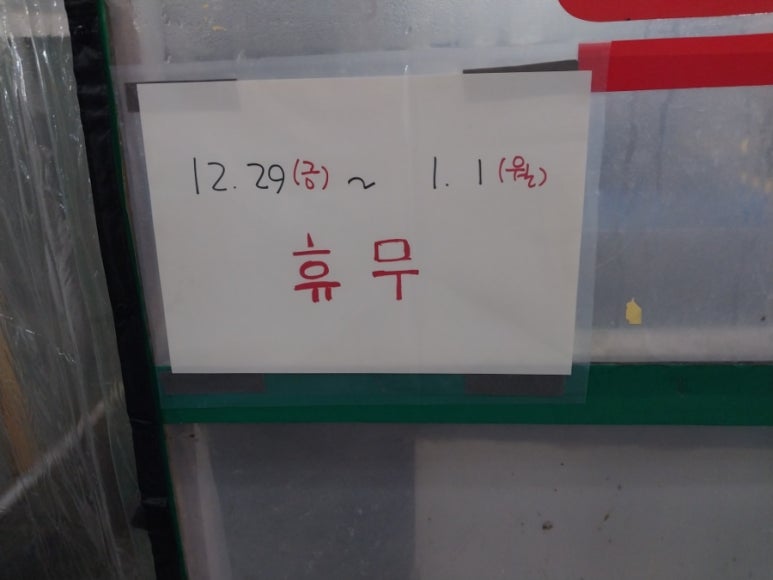 12.29(금) ~ 1.1(월)
휴무